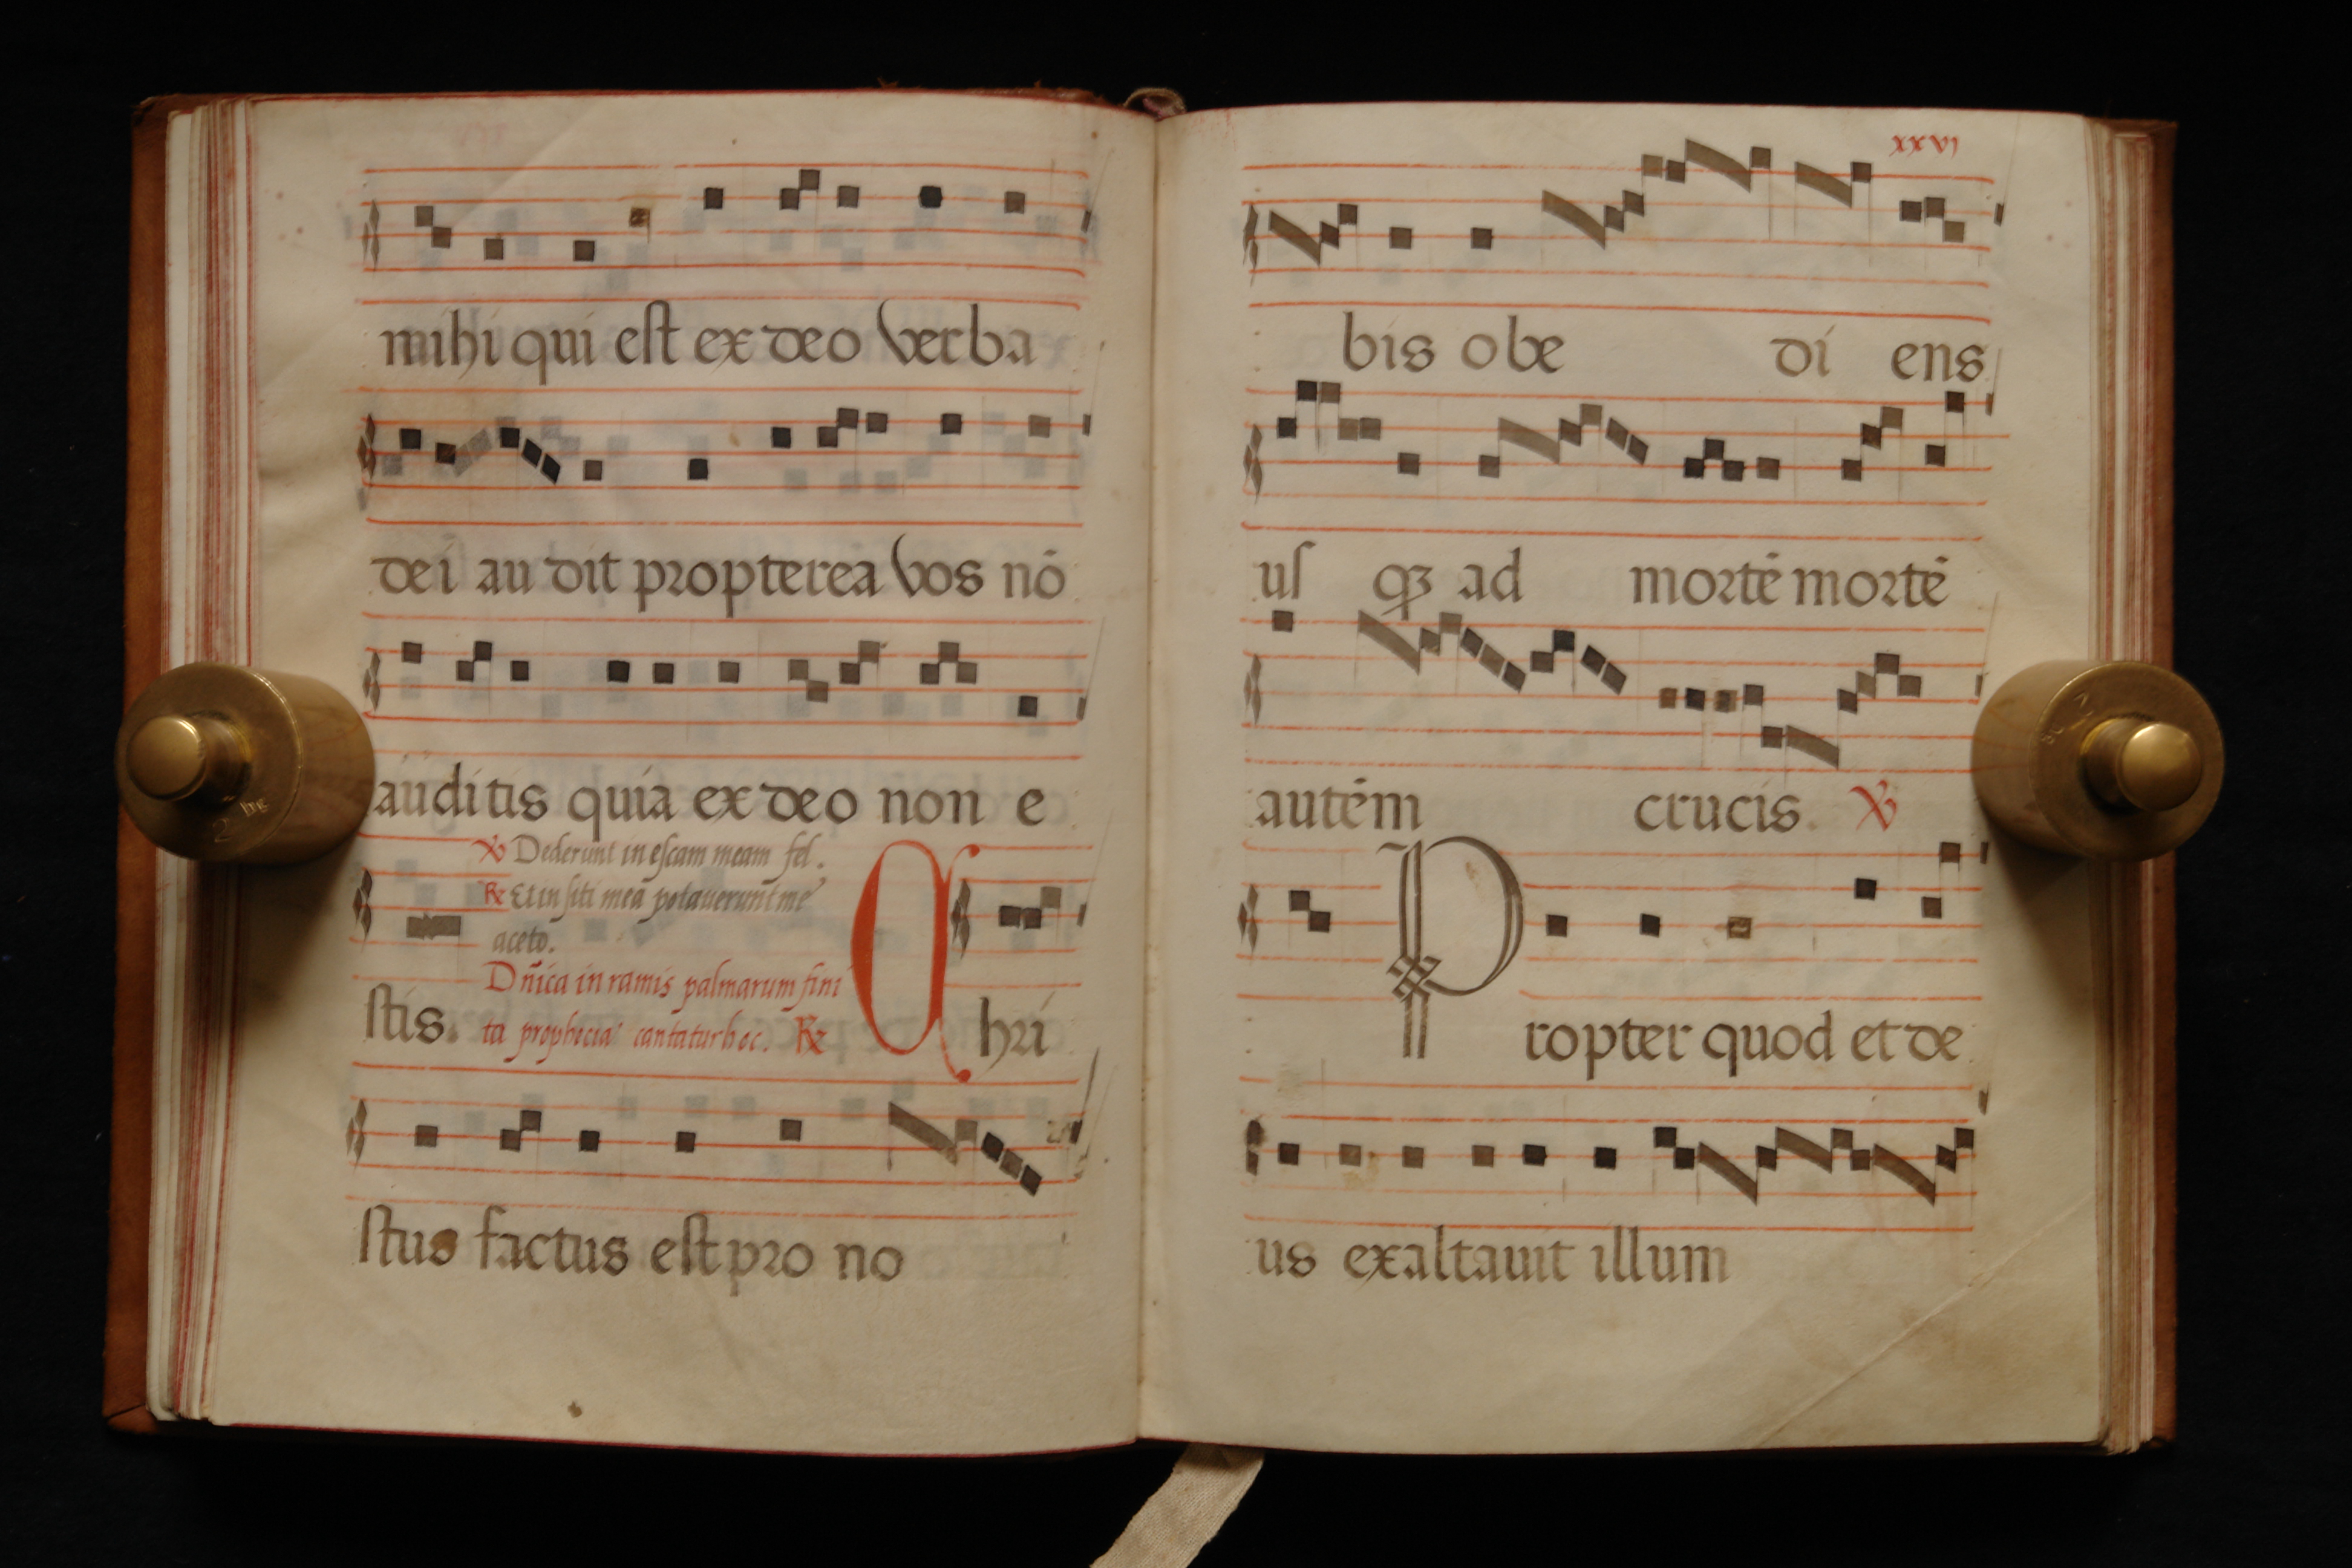 mihi qui est ex deo verba
dei au dit propterea vos nō
auditis quia ex deo non e
℣ Dederunt in escam meam fel.
℟ Et in siti mea potaverunt me
aceto.
Dñica in ramis palmarum fini
ta prophecia cantatur hoc. ℟
stis. Chri
stus factus est pro no
xxvi
bis obe di ens
us qꝫ ad mortē mortē
autēm crucis. ℣
Propter quod et de
us exaltauit illum